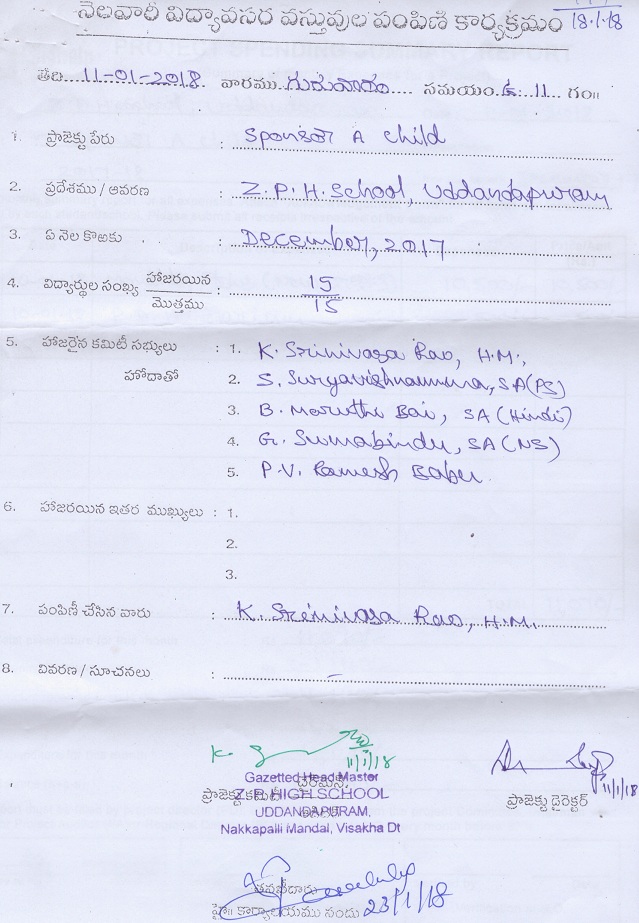 నెలవారీ విద్యావసర వస్తువుల పంపిణీ కార్యక్రమం
18.1.18
తేది. 11-01-2018 వారము గురువారం సమయం. ఉ. 11 గం॥
1. ప్రాజెక్టు పేరు : Sponsor A child
2. ప్రదేశము / ఆవరణ : Z.P.H.School, Uddandapuram
3. ఏ నెల కొఱకు : December, 2017
4. విద్యార్థుల సంఖ్య హాజరయిన : 15
మొత్తము 15
5. హాజరైన కమిటీ సభ్యులు : 1. K. Srinivasa Rao, H.M.,
హోదాతో 2. S. Suryavishnamma, SA(PS)
3. B. Maruthi Bai, SA (Hindi)
4. G. Sumabindu, SA (NS)
5. P.V. Ramesh Babu.
6. హాజరయిన ఇతర ముఖ్యులు : 1.
2.
3.
7. పంపిణీ చేసిన వారు : K. Srinivasa Rao, H.M.
8. వివరణ / సూచనలు : –
11/1/18
Gazetted Head Master
Z.P. HIGH SCHOOL
UDDANDAPURAM,
Nakkapalli Mandal, Visakha Dt
11/1/18
ప్రాజెక్టు డైరెక్టర్
కార్యాలయము నందు 23/1/18